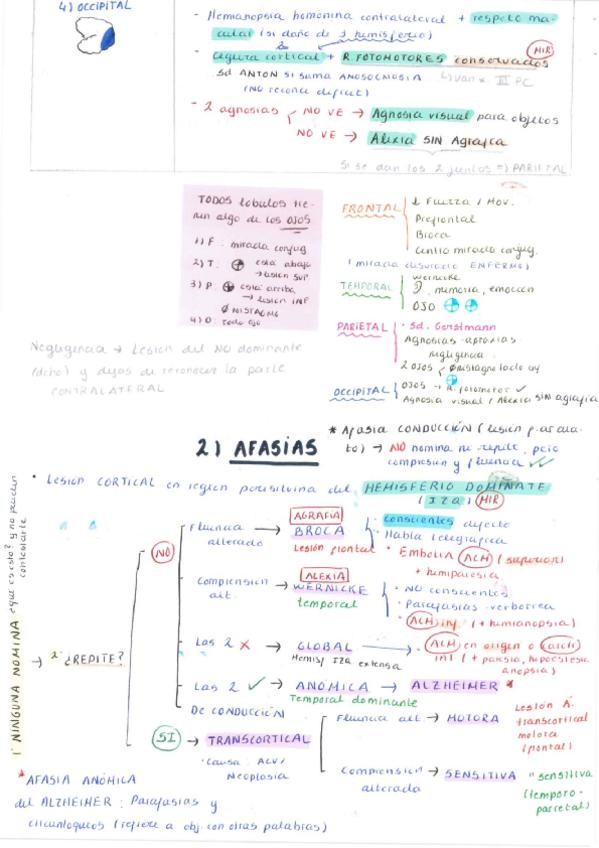 4) OCCIPITAL
- Hemianopsia homonima contralateral + respeto ma-
cular (si daño de 1 hemisferio)
- ceguera cortical + R. FOTOMOTORES conservados
MIR
Sd ANTON si suma ANOSOGNOSIA
III PC
(NO reconoce deficit)
- 2 agnosias
NO VE → Agnosia visual para objetos
NO VE → Alexia SIN Agrafia
Si se dan los 2 juntos => PARIETAL
TODOS lobulos tie-
nen algo de los OJOS
1) F: mirada conjug
2) T: esta abajo
→ lesion sup
3) P: esta arriba
→ lesion INF
Ø NISTAGMO
4) O: Todo ojo
FRONTAL
↓ Fuerza / Mov.
Prefrontal
Broca
Centro mirada conjug.
(mirada ENFERMO)
TEMPORAL
Wernicke
memoria, emocion
OJO
PARIETAL
Sd. Gerstmann
Agnosias - apraxias
negligencia
2 OJOS
OCCIPITAL
OJOS → R. fotomotor ✓
Agnosia visual / Alexia SIN agrafia
Negligencia → Lesion del NO dominante
(dcho) y dejas de reconocer la parte
CONTRALATERAL
2) AFASIAS
* Afasia CONDUCCIÓN (lesion
to) → NO nomina ni repite, pero
compresion y fluencia ✓✓
• Lesion CORTICAL en region perisilviana del HEMISFERIO DOMINATE
(IZQ) MIR
1º NINGUNA NOMINA ¿que es esto? y no pueden
contestarte
→ 2º ¿REPITE?
NO
Fluencia
alterado
→
AGRAFIA
BROCA
Lesión frontal
• conscientes defecto
• Habla telegrafica
• Embolia ACM (superior)
+ hemiparesia
Comprension
alt.
→
ALEXIA
WERNICKE
temporal
• NO conscientes
• Parafasias - verborrea
• ACM inf. (+ hemianopsia)
Las 2 ✗ → GLOBAL
Hemisf IZQ extensa
• ACM en origen o
int (+ paresia, hipoestesia
anopsia)
Las 2 ✓ → ANOMICA → ALZHEIMER *
Temporal dominante
DE CONDUCCIÓN
SI → TRANSCORTICAL
Causa: ACV/
Neoplasia
Fluencia alt. → MOTORA
Lesión A.
transcortical
motora
(frontal)
Comprension
alterada
→ SENSITIVA
"sensitiva
(temporo-
parietal)
* AFASIA ANÓMICA
del ALZHEIMER: Parafasias y
circunloquios (refiere a obj. con otras palabras)